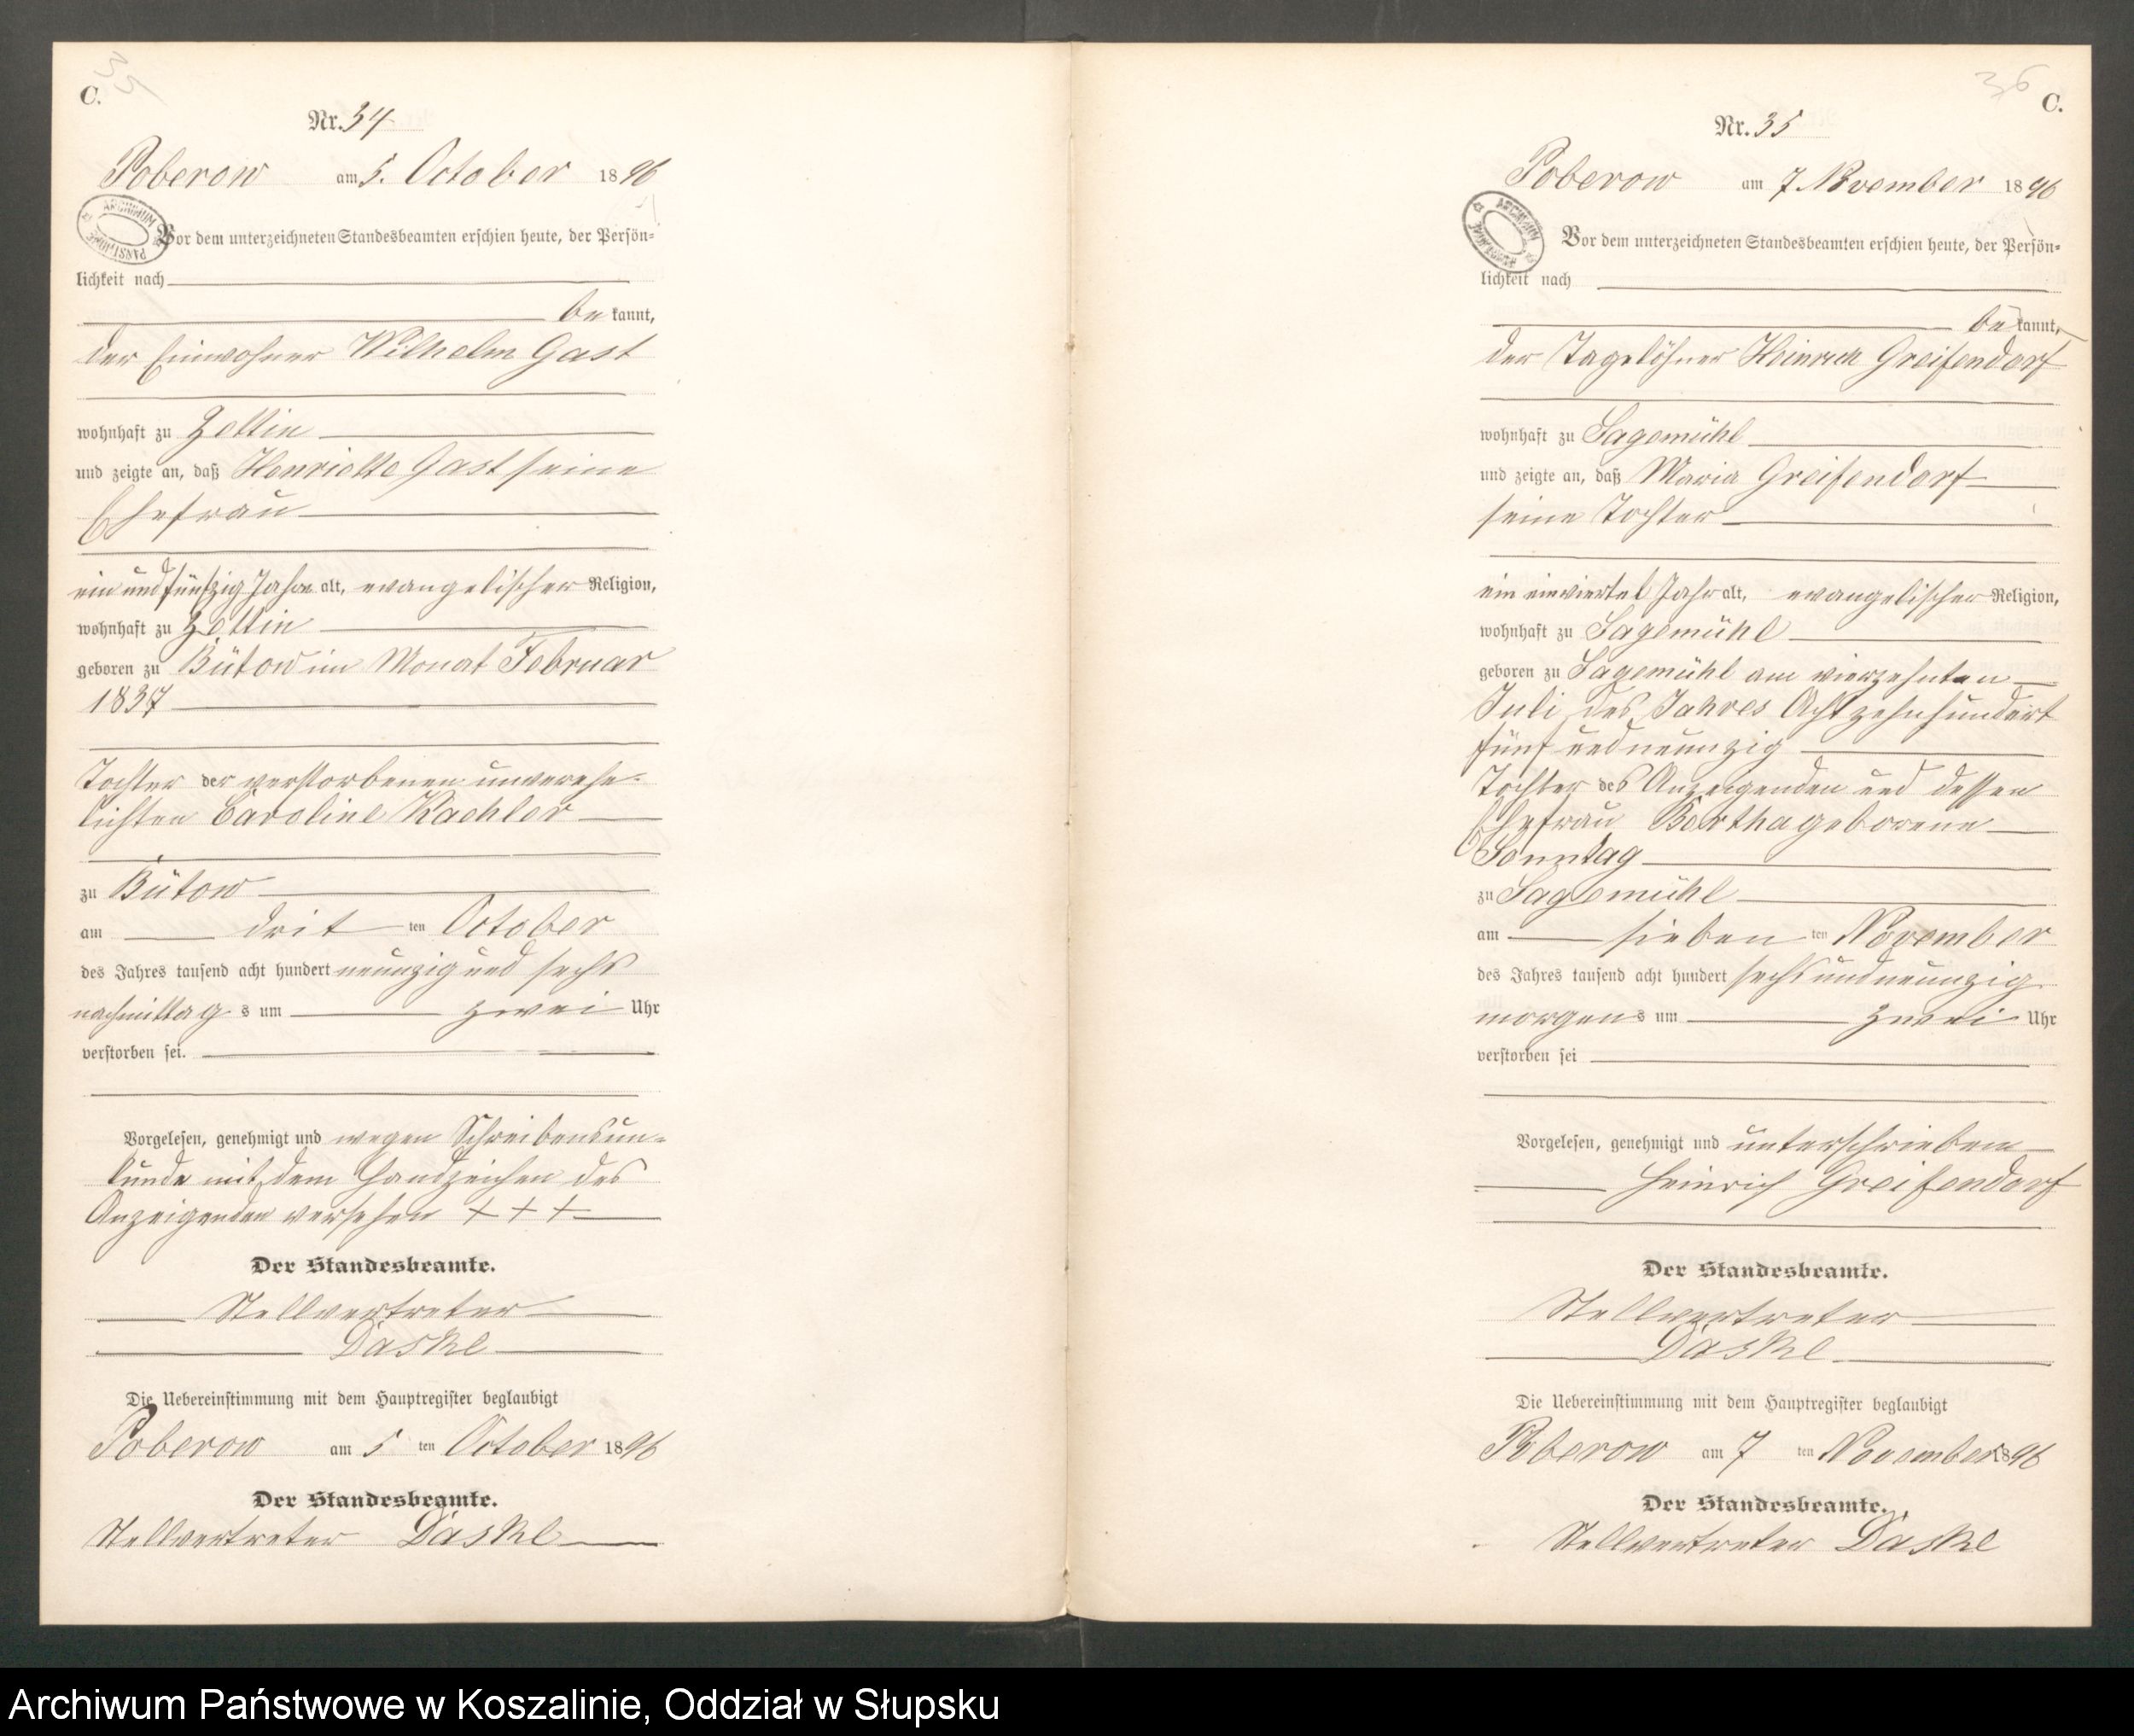 35
C.
Nr. 34
Poberow am 5. October 1896
Vor dem unterzeichneten Standesbeamten erschien heute, der Persön-
lichkeit nach
be kannt,
der Einwohner Wilhelm Gast
wohnhaft zu Zettin
und zeigte an, daß Henriette Gast seine
Ehefrau
ein und fünfzig Jahre alt, evangelischer Religion,
wohnhaft zu Zettin
geboren zu Bütow im Monat Februar
1837
Tochter der verstorbenen unverehe-
lichten Caroline Kaehler
zu Bütow
am drit ten October
des Jahres tausend acht hundert neunzig und sechs
nachmittag s um zwei Uhr
verstorben sei.
Vorgelesen, genehmigt und wegen Schreibensun-
kunde mit dem Handzeichen des
Anzeigenden versehen + + +
Der Standesbeamte.
Stellvertreter
Daske
Die Uebereinstimmung mit dem Hauptregister beglaubigt
Poberow am 5 ten October 1896
Der Standesbeamte.
Stellvertreter Daske
36
C.
Nr. 35
Poberow am 7 November 1896
Vor dem unterzeichneten Standesbeamten erschien heute, der Persön-
lichkeit nach
be kannt,
der Tagelöhner Heinrich Greifendorf
wohnhaft zu Sagemühl
und zeigte an, daß Maria Greifendorf
seine Tochter
ein einviertel Jahr alt, evangelischer Religion,
wohnhaft zu Sagemühl
geboren zu Sagemühl am vierzehnten
Juli des Jahres Achtzehnhundert
fünf und neunzig
Tochter des Anzeigenden und dessen
Ehefrau Bertha geborene
Sonntag
zu Sagemühl
am sieben ten November
des Jahres tausend acht hundert sechs und neunzig
morgens um zwei Uhr
verstorben sei
Vorgelesen, genehmigt und unterschrieben
Heinrich Greifendorf
Der Standesbeamte.
Stellvertreter
Daske
Die Uebereinstimmung mit dem Hauptregister beglaubigt
Poberow am 7 ten November 1896
Der Standesbeamte.
Stellvertreter Daske
Archiwum Państwowe w Koszalinie, Oddział w Słupsku